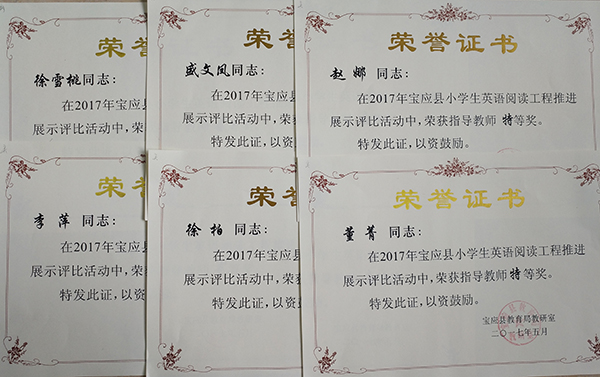 荣
徐雪桃同志：
在2017年宝应县
展示评比活动中，荣
特发此证，以
荣誉
盛文凤同志：
在2017年宝应县
展示评比活动中，荣获
特发此证，以资
荣誉证书
赵娜 同志：
在2017年宝应县小学生英语阅读工程推进
展示评比活动中，荣获指导教师 特等奖。
特发此证，以资鼓励。
荣
李萍 同志：
在2017年宝应县
展示评比活动中，荣
特发此证，以
荣誉
徐柏 同志：
在2017年宝应县
展示评比活动中，荣获
特发此证，以资
荣誉证书
董菁 同志：
在2017年宝应县小学生英语阅读工程推进
展示评比活动中，荣获指导教师 特等奖。
特发此证，以资鼓励。
宝应县教育局教研室
二〇一七年五月